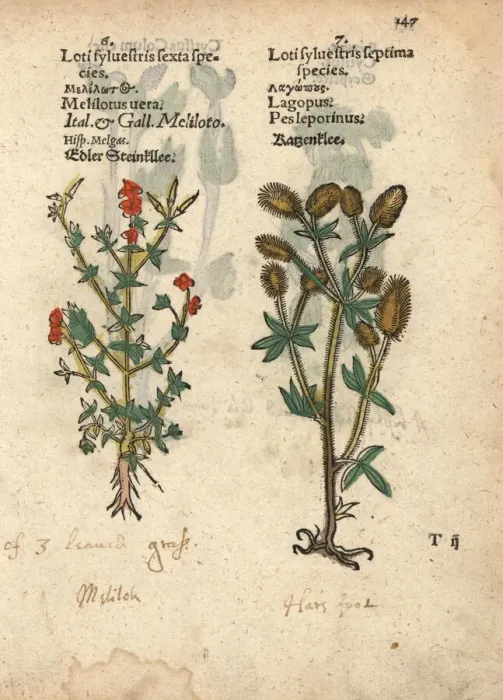 147
6.
Loti syluestris sexta spe-
cies.
Μελίλωτ⊕.
Melilotus uera:
Ital. & Gall. Meliloto.
Hisp. Melgas.
Edler Steinkllee:
7.
Loti syluestris septima
species.
Λαγώπους.
Lagopus:
Pes leporinus:
Katzenklee.
T ij
of 3 leaued grass.
Melilot
Hars foot